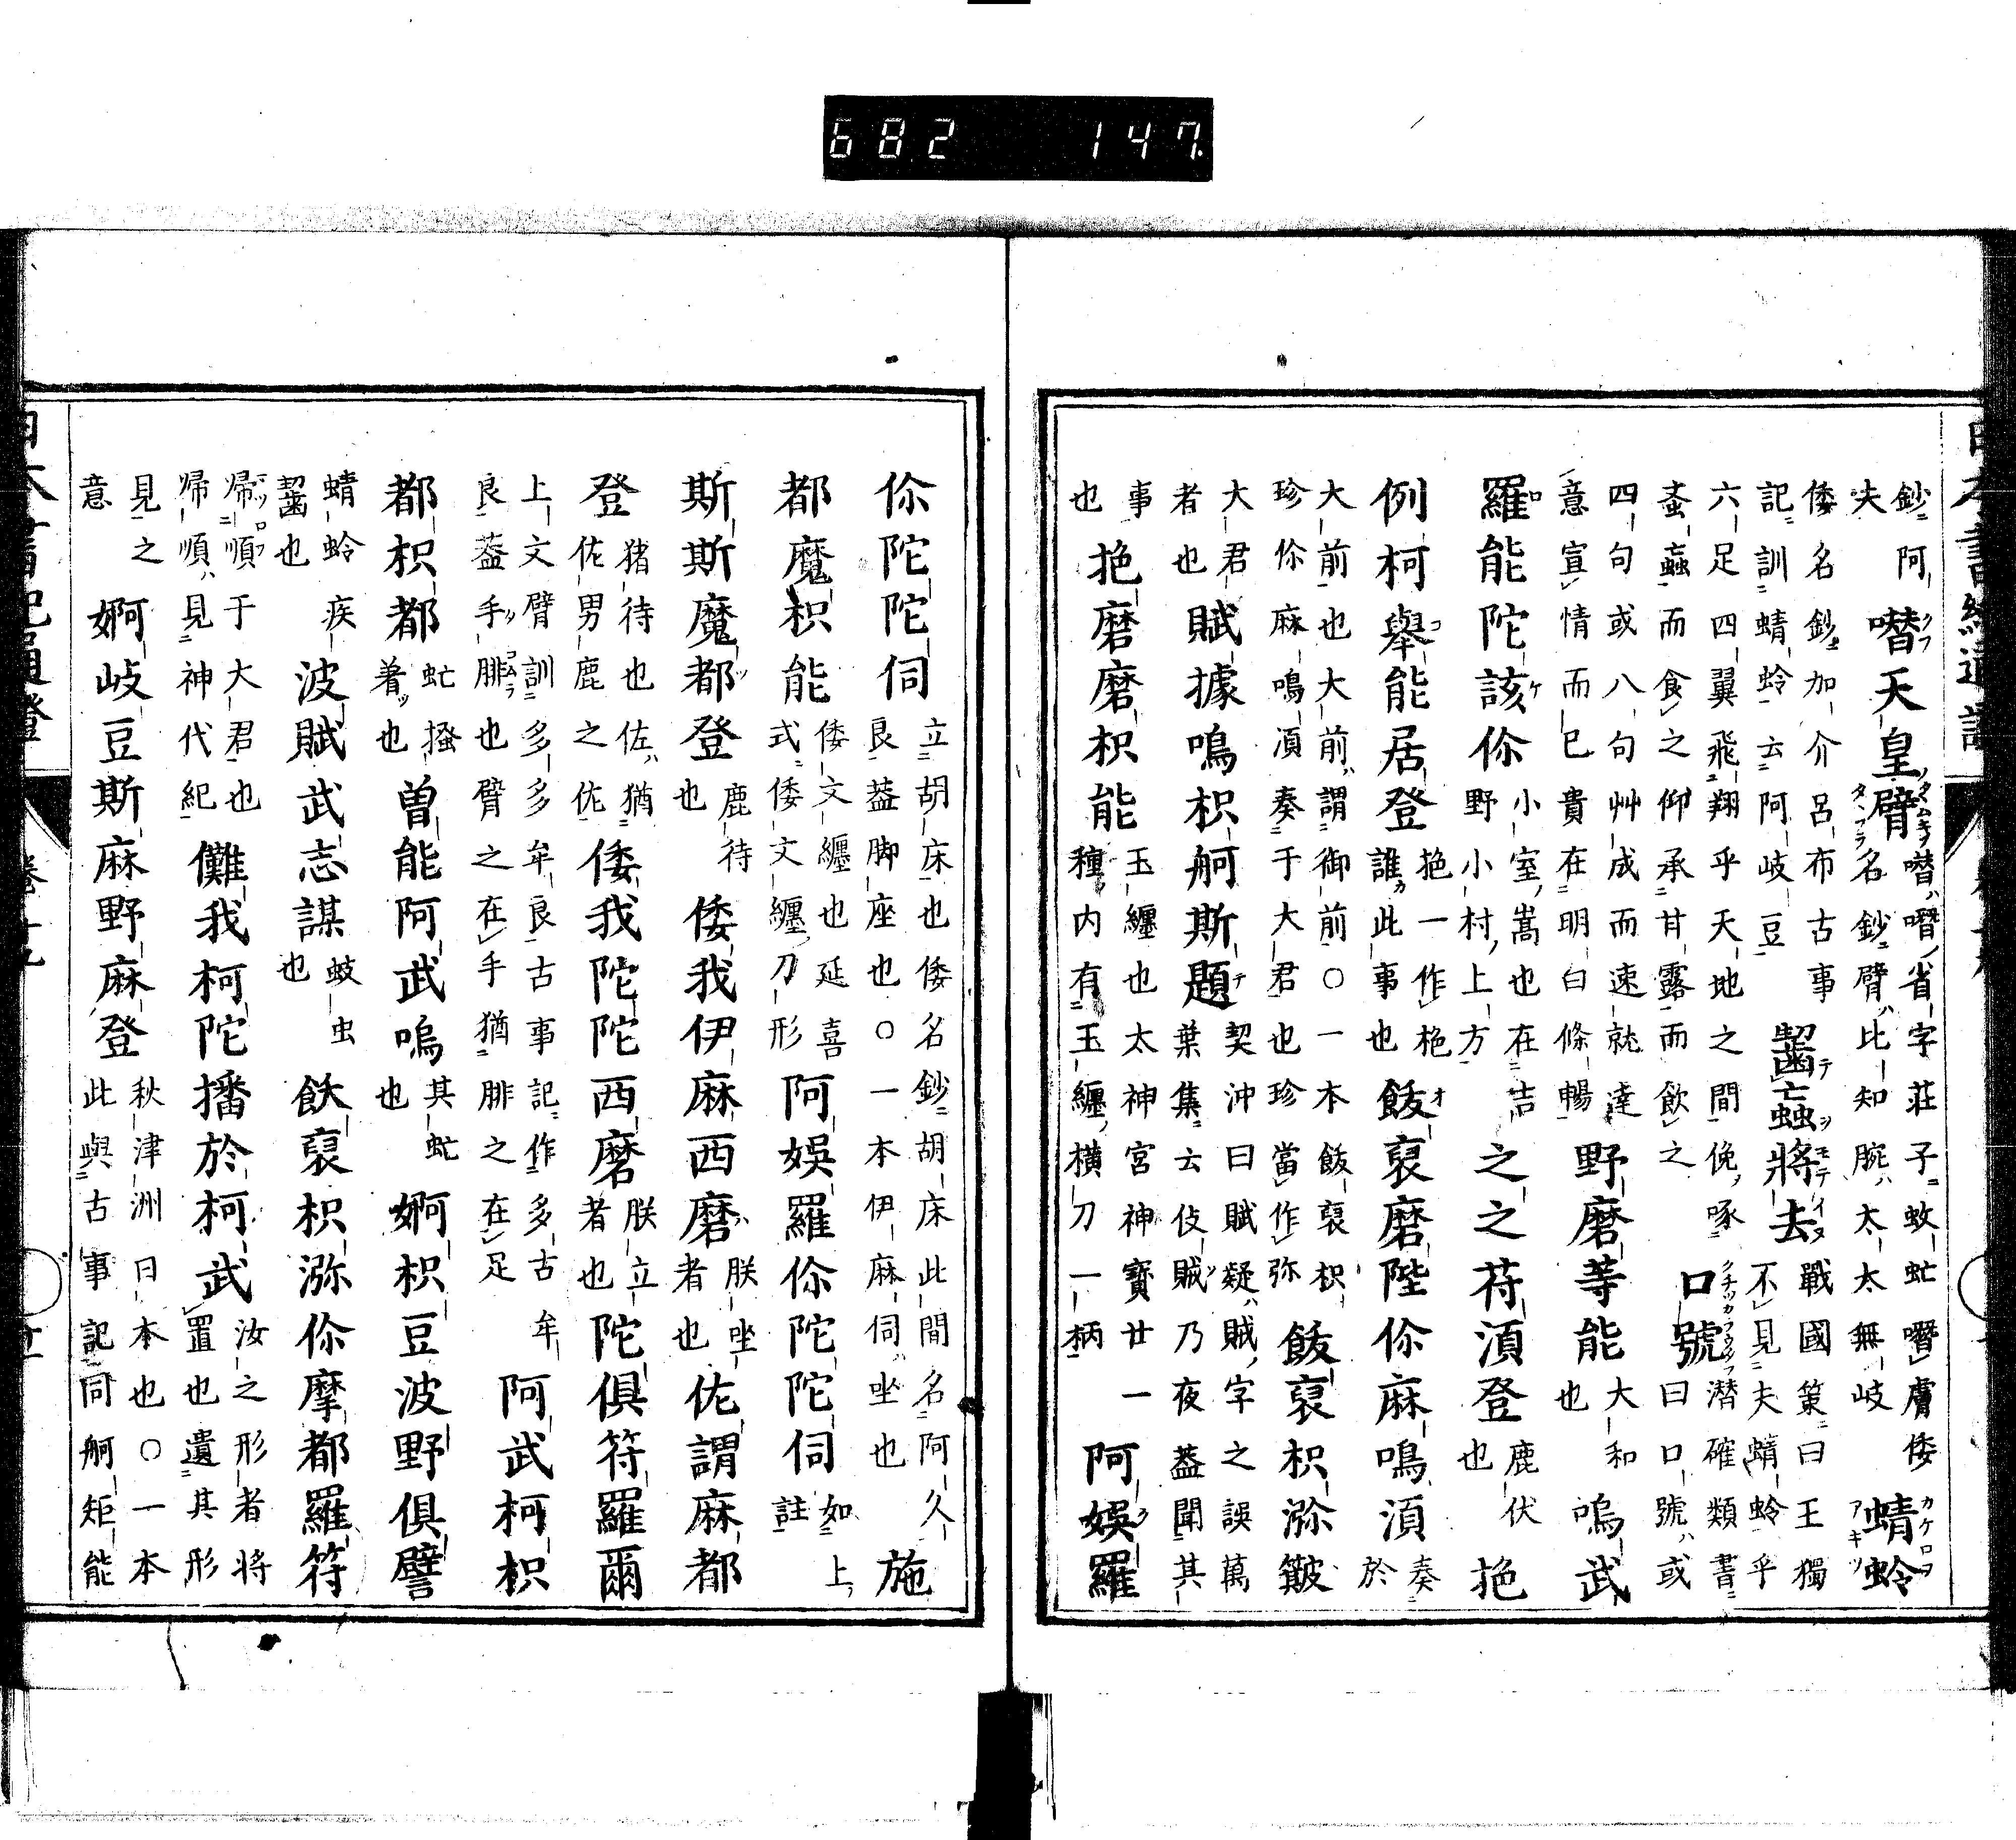 682 147
鈔阿夫 噆天皇臂 噆噆省字莊子蚊虻噆膚倭名鈔臂比知腕太太無岐 蜻蛉
倭名鈔加介呂布古事記訓蜻蛉云阿岐豆 齧䖟將去 戰國策曰王獨不見夫蜻蛉乎
六足四翼飛翔乎天地之間俛啄蚉蝱而食之仰承甘露而飲之 口號 潜確類書曰口號或
四句或八句艸成而速就達意宣情而已貴在明白條暢 野磨等能 大和也 嗚武
羅能陀該儞 小室嵩也在吉野小村上方 之之符湏登 鹿伏也 挹
例柯舉能居登 挹一作柂誰此事也 飫裒磨陛儞麻嗚湏 奏於
大前也大前謂御前○一本飫裒枳珍儞麻嗚湏奏于大君也珍當作弥 飫裒枳瀰簸
大君者也 賦據嗚枳舸斯題 契沖曰賦疑賊字之誤萬葉集云伎賊乃夜葢聞其
事也 挹磨磨枳能 玉纏也太神宮神寶廿一種内有玉纏横刀一柄 阿娯羅
儞陀陀伺 立胡床也倭名鈔胡床此間名阿久良葢脚座也○一本伊麻伺坐也 施
都魔枳能 倭文纏也延喜式倭文纏刀形 阿娯羅儞陀陀伺 如上註
斯斯魔都登 鹿待也 倭我伊麻西磨 朕坐者也 佐謂麻都
登 猪待也佐猶佐男鹿之佐 倭我陀陀西磨 朕立者也 陀倶符羅爾
上文臂訓多多牟良古事記作多古牟良葢手腓也臂之在手猶腓之在足 阿武柯枳
都枳都 虻掻着也 曽能阿武嗚 其虻也 婀枳豆波野倶譬
蜻蛉疾齧也 波賦武志謀 蚑虫也 飫裒枳瀰儞摩都羅符
歸順于大君也歸順見神代紀 儺我柯陀播於柯武 汝之形者將置也遺其形
見之意 婀岐豆斯麻野麻登 秋津洲日本也○一本此與古事記同舸矩能